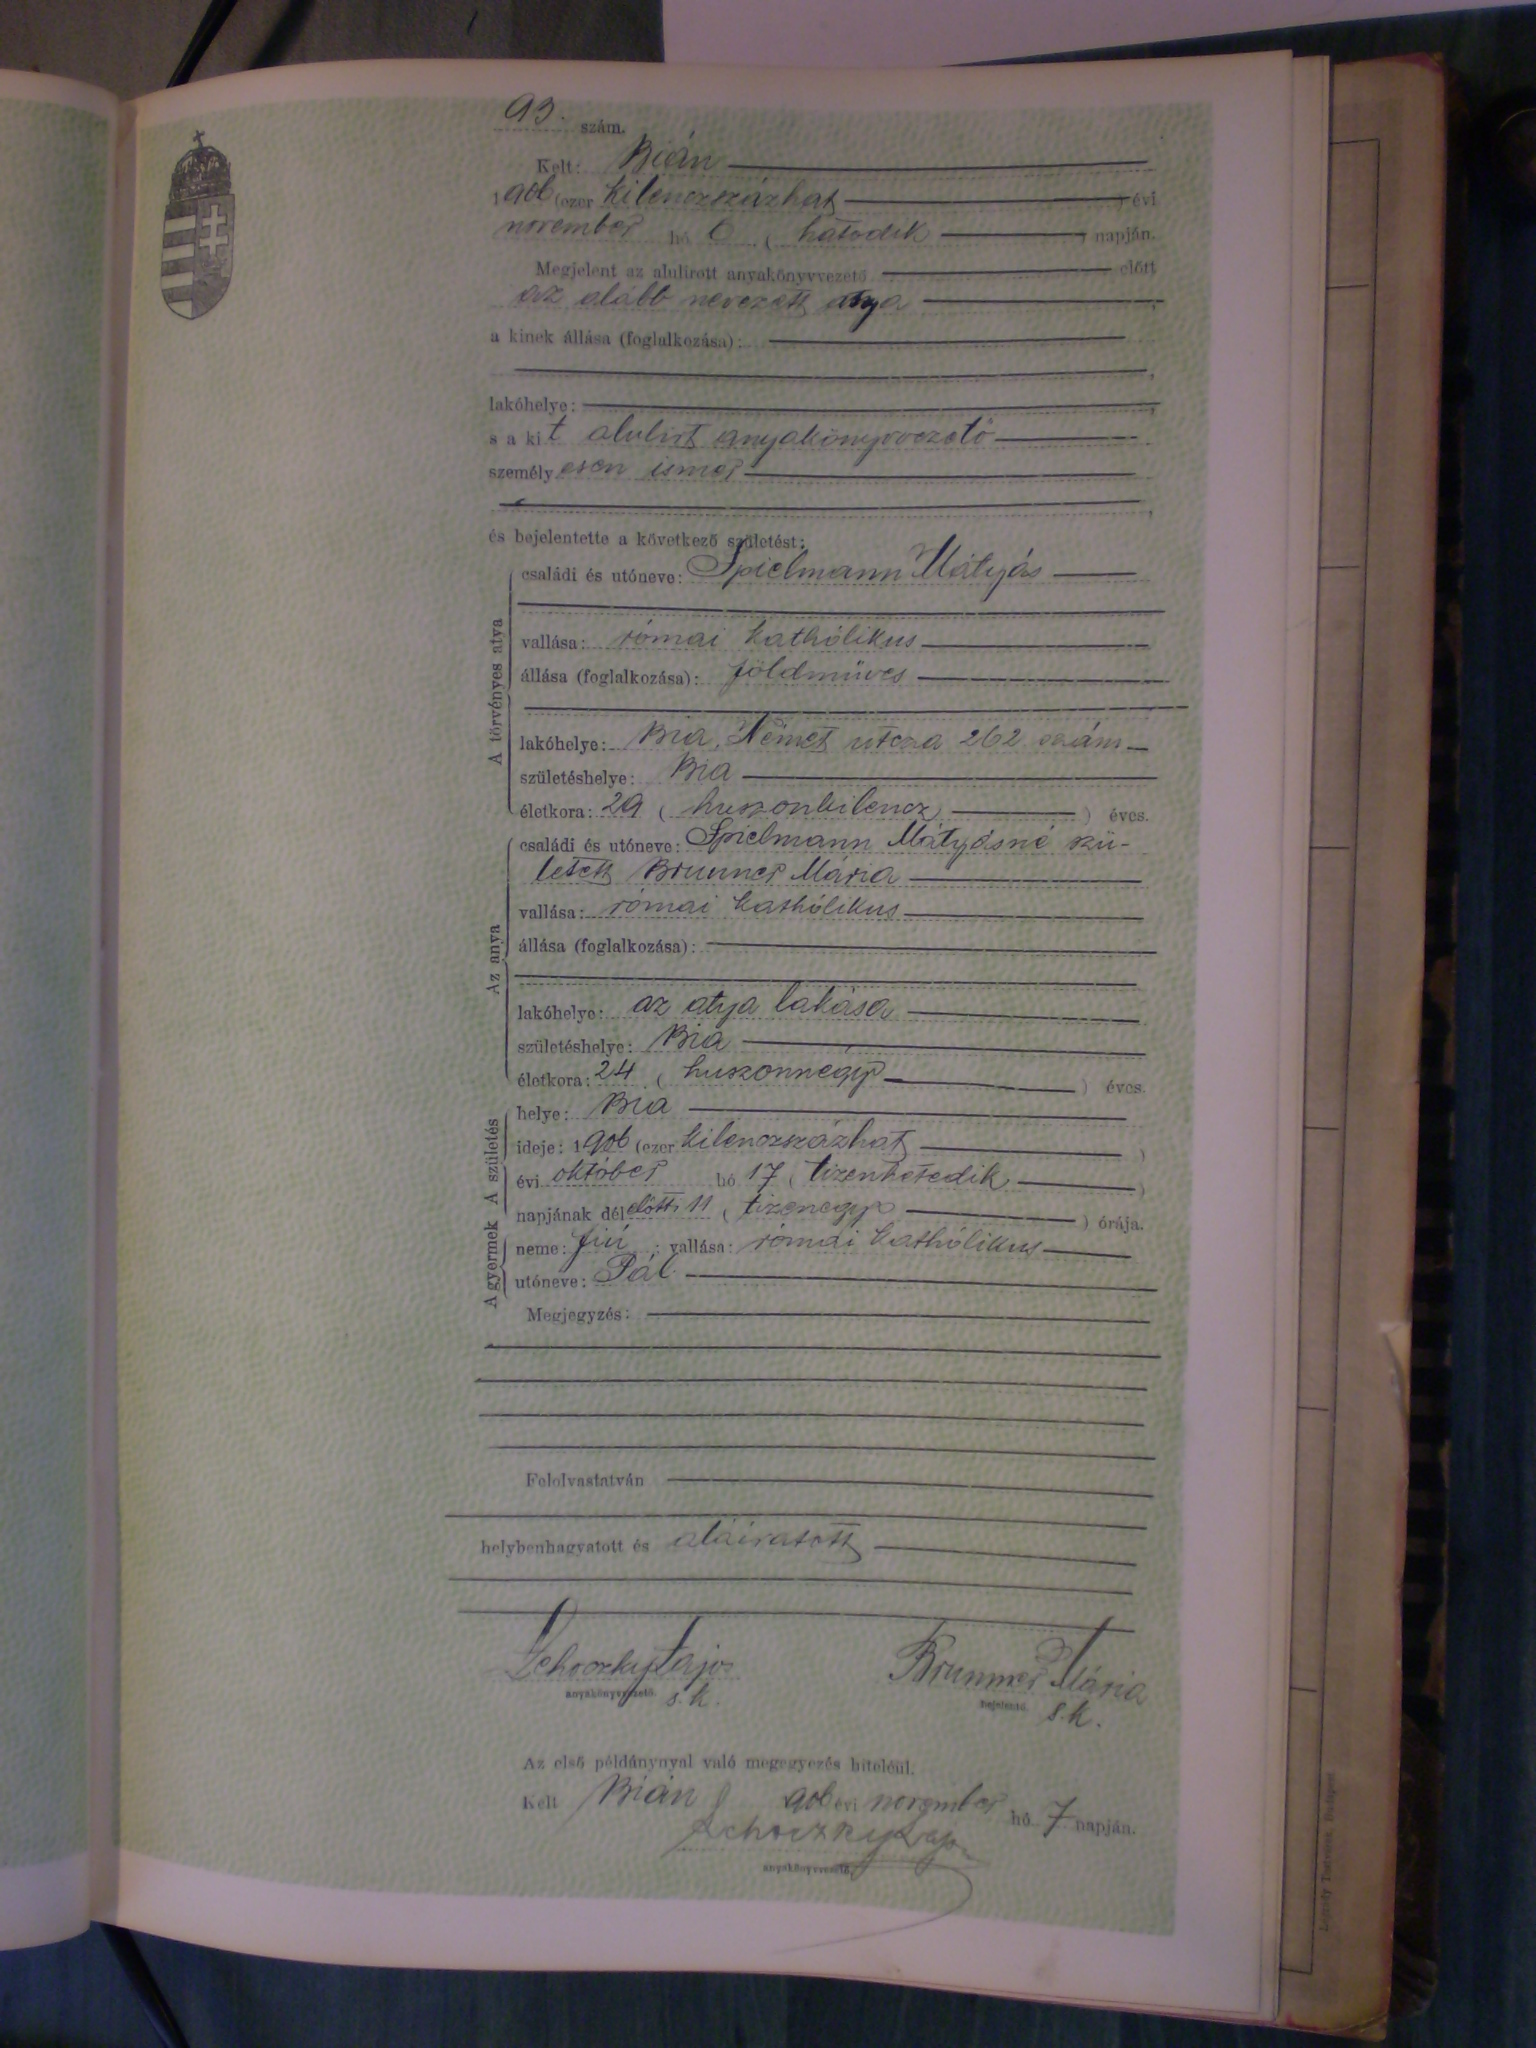 93. szám.
Kelt: Bián
1906 (ezer kilenczszázhat) évi
november hó 6 (hatodik) napján.
Megjelent az alulirott anyakönyvvezető előtt
az alább nevezett anya,
a kinek állása (foglalkozása):
lakóhelye:
s a kit alulirt anyakönyvvezető
személyesen ismer
és bejelentette a következő születést:
A törvényes atya
családi és utóneve: Spielmann Mátyás
vallása: római kathólikus
állása (foglalkozása): földmüves
lakóhelye: Bia, Német utcza 262 szám
születéshelye: Bia
életkora: 29 (huszonkilencz) éves.
Az anya
családi és utóneve: Spielmann Mátyásné szü-
letett Brunner Mária
vallása: római kathólikus
állása (foglalkozása):
lakóhelye: az atya lakása
születéshelye: Bia
életkora: 24 (huszonnégy) éves.
A születés
helye: Bia
ideje: 1906 (ezer kilenczszázhat)
évi október hó 17 (tizenhetedik)
napjának délelőtti 11 (tizenegy) órája.
A gyermek
neme: fiú; vallása: római kathólikus
utóneve: Pál
Megjegyzés:
Felolvastatván
helybenhagyatott és aláiratott
Schoczky Lajos Brunner Mária
anyakönyvvezető. s.k. bejelentő. s.k.
Az első példánynyal való megegyezés hiteléül.
Kelt Bián 906 évi november hó 7 napján.
Schoczky Lajos
anyakönyvvezető.